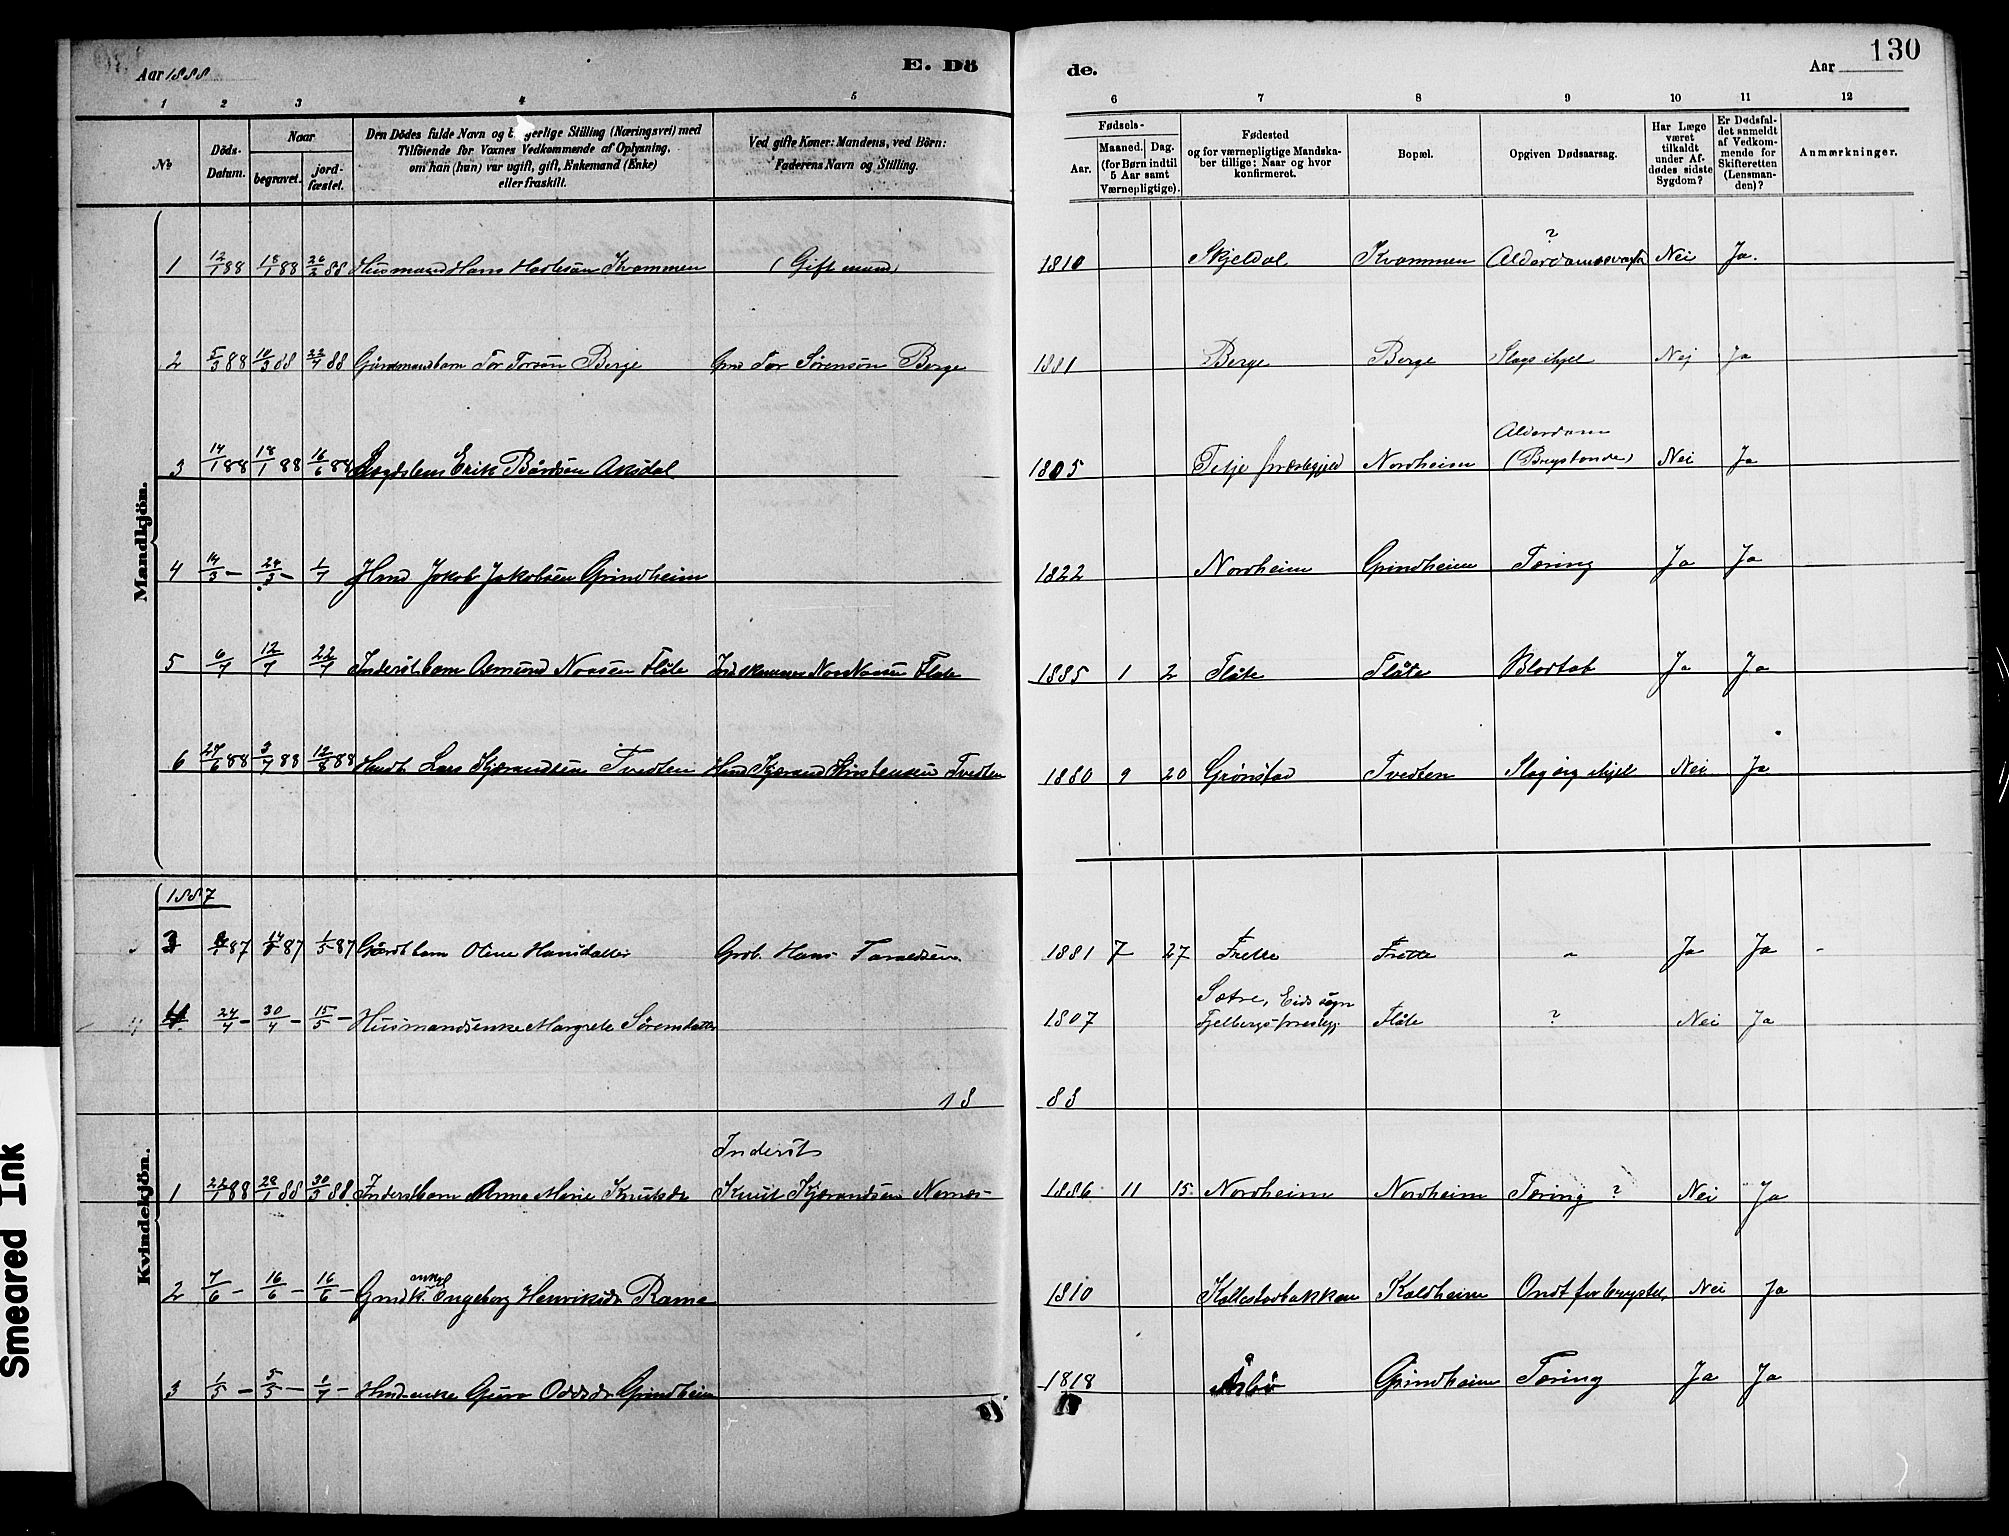 130
Aar 1888
E. Dö
de.
Aar
1 2 3 4 5 6 7 8 9 10 11 12
№
Döds-
Datum.
Naar
begravet.
jord-
fæstet.
Den Dödes fulde Navn og borgerlige Stilling (Næringsvei) med
Tilföiende for Voxnes Vedkommende af Oplysning,
om han (hun) var ugift, gift, Enkemand (Enke)
eller fraskilt.
Ved gifte Koner: Mandens, ved Börn:
Faderens Navn og Stilling.
Fødsels-
Aar.
Maaned. Dag.
(for Børn indtil
5 Aar samt
Værnepligtige).
Fødested
og for værnepligtige Mandska-
ber tillige; Naar og hvor
konfirmeret.
Bopæl.
Opgiven Dødsaarsag.
Har Læge
været
tilkaldt
under Af-
dødes sidste
Sygdom?
Er Dødsfal-
det anmeldt
af Vedkom-
mende for
Skifteretten
(Lensman-
den)?
Anmærkninger.
Mandkjön.
1 12/1 88 18/1 88 26/2 88 Husmand Hans Kvammen (Gift mand) 1810 Skjeldal Kvammen Alderdomssvaghed ? Nei Ja.
2 5/3 88 10/3 88 22/4 88 Gårdmandsbarn Tor Torsøn Berge Gmd Tor Sørensøn Berge 1881 Berge Berge Slags ihjel Nej Ja
3 14/1 88 18/1 88 16/6 88 Lægdslem Erik Bårdsen Aksdal 1805 Præstegjeld Nordheim Alderdom (Brystonde) Nei Ja
4 14/3 – 24/3 – 1/7 Hmd Jakob Jakobsen Grindheim 1822 Nordheim Grindheim Tæring Ja Ja
5 6/7 12/7 22/7 Inderstbarn Asmund Flåte Flate 1885 1 2 Flåte Flåte Blodtab Ja Ja
6 27/6 88 3/7 88 12/8 88 Lars Kjærandsen Tvedten Hmd Kjærand Kristensen Tvedten 1880 9 20 Grønstad Tvedten Slog sig ihjel Nei Ja
Kvindekjön.
1887
3 87 87 1/5 87 Gårdbarn Oline Hansdatter Grdb. Hans Taraldsen 1881 7 27 Frette Frette " Ja Ja –
4 24/4 – 30/4 – 15/5 – Husmandsenke Margrete Sørensdatter 1807 Sætre, Eids sogn
Fjelbergs præstegj. Flåte ? Nei Ja
18 88
Inderst
1 22/1 88 28/1 88 30/3 88 Inderstbarn Anna Marie Knutsdr Knut Kjærandsen Nernes- 1886 11 15 Nordheim Nordheim Tæring ? Nei Ja
2 7/6 – 16/6 – 16/6 – Gmd enke Engeborg Henriksdr Ramе 1810 Kallestadbakken Kaldheim Ondt for brystet Nei Ja
3 1/5 – 5/5 – 1/7 – Hmd enke Guro Oddsdr Grindheim 1818 Årbø Grindheim Tæring Ja Ja
Smeared Ink